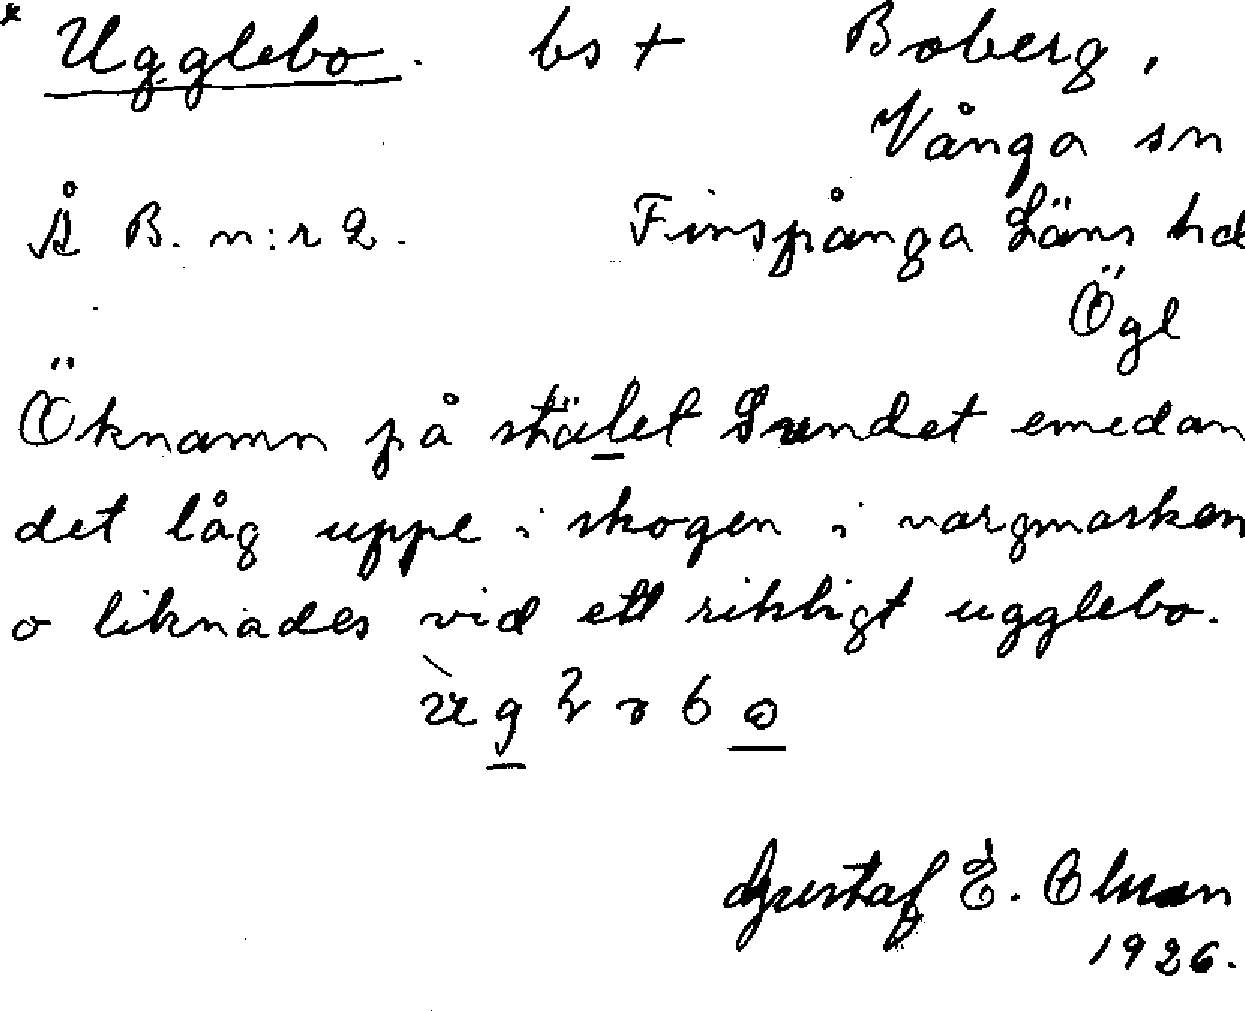 * Ugglebo. bs + Boberg,
Vånga sn
Å B. n:r 2. Finspånga Läns hd
Ögl
Öknamn på stället Sundet emedan
det låg uppe i skogen i vargmarken
o liknades vid ett riktigt ugglebo.
Gustaf E. Olsson
1926.